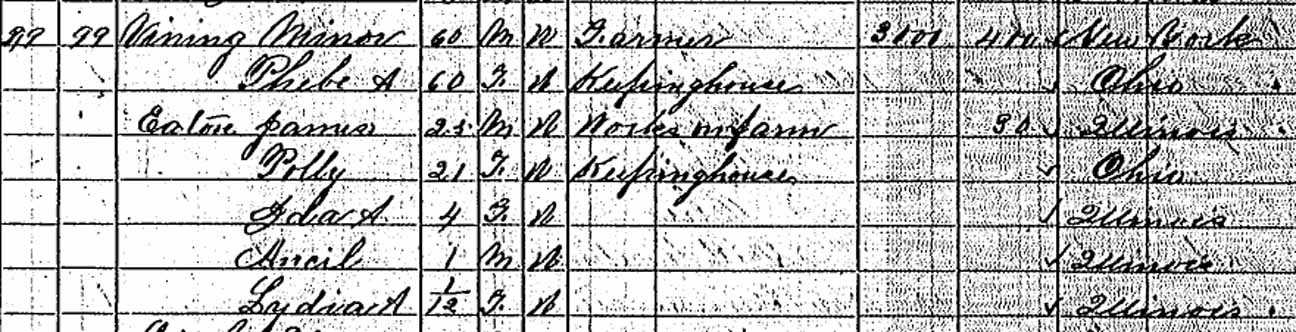 99 99 Vining Minor 60 M W Farmer 3000 400 New York
Phebe A 60 F. W Keepinghouse Ohio
Eaton James 23 M W Works on farm 30 Illinois
Polly 21 F. W Keepinghouse Ohio
Ida A 4 F. W Illinois
Ancil 1 M W Illinois
Lydia A 1/12 F. W Illinois